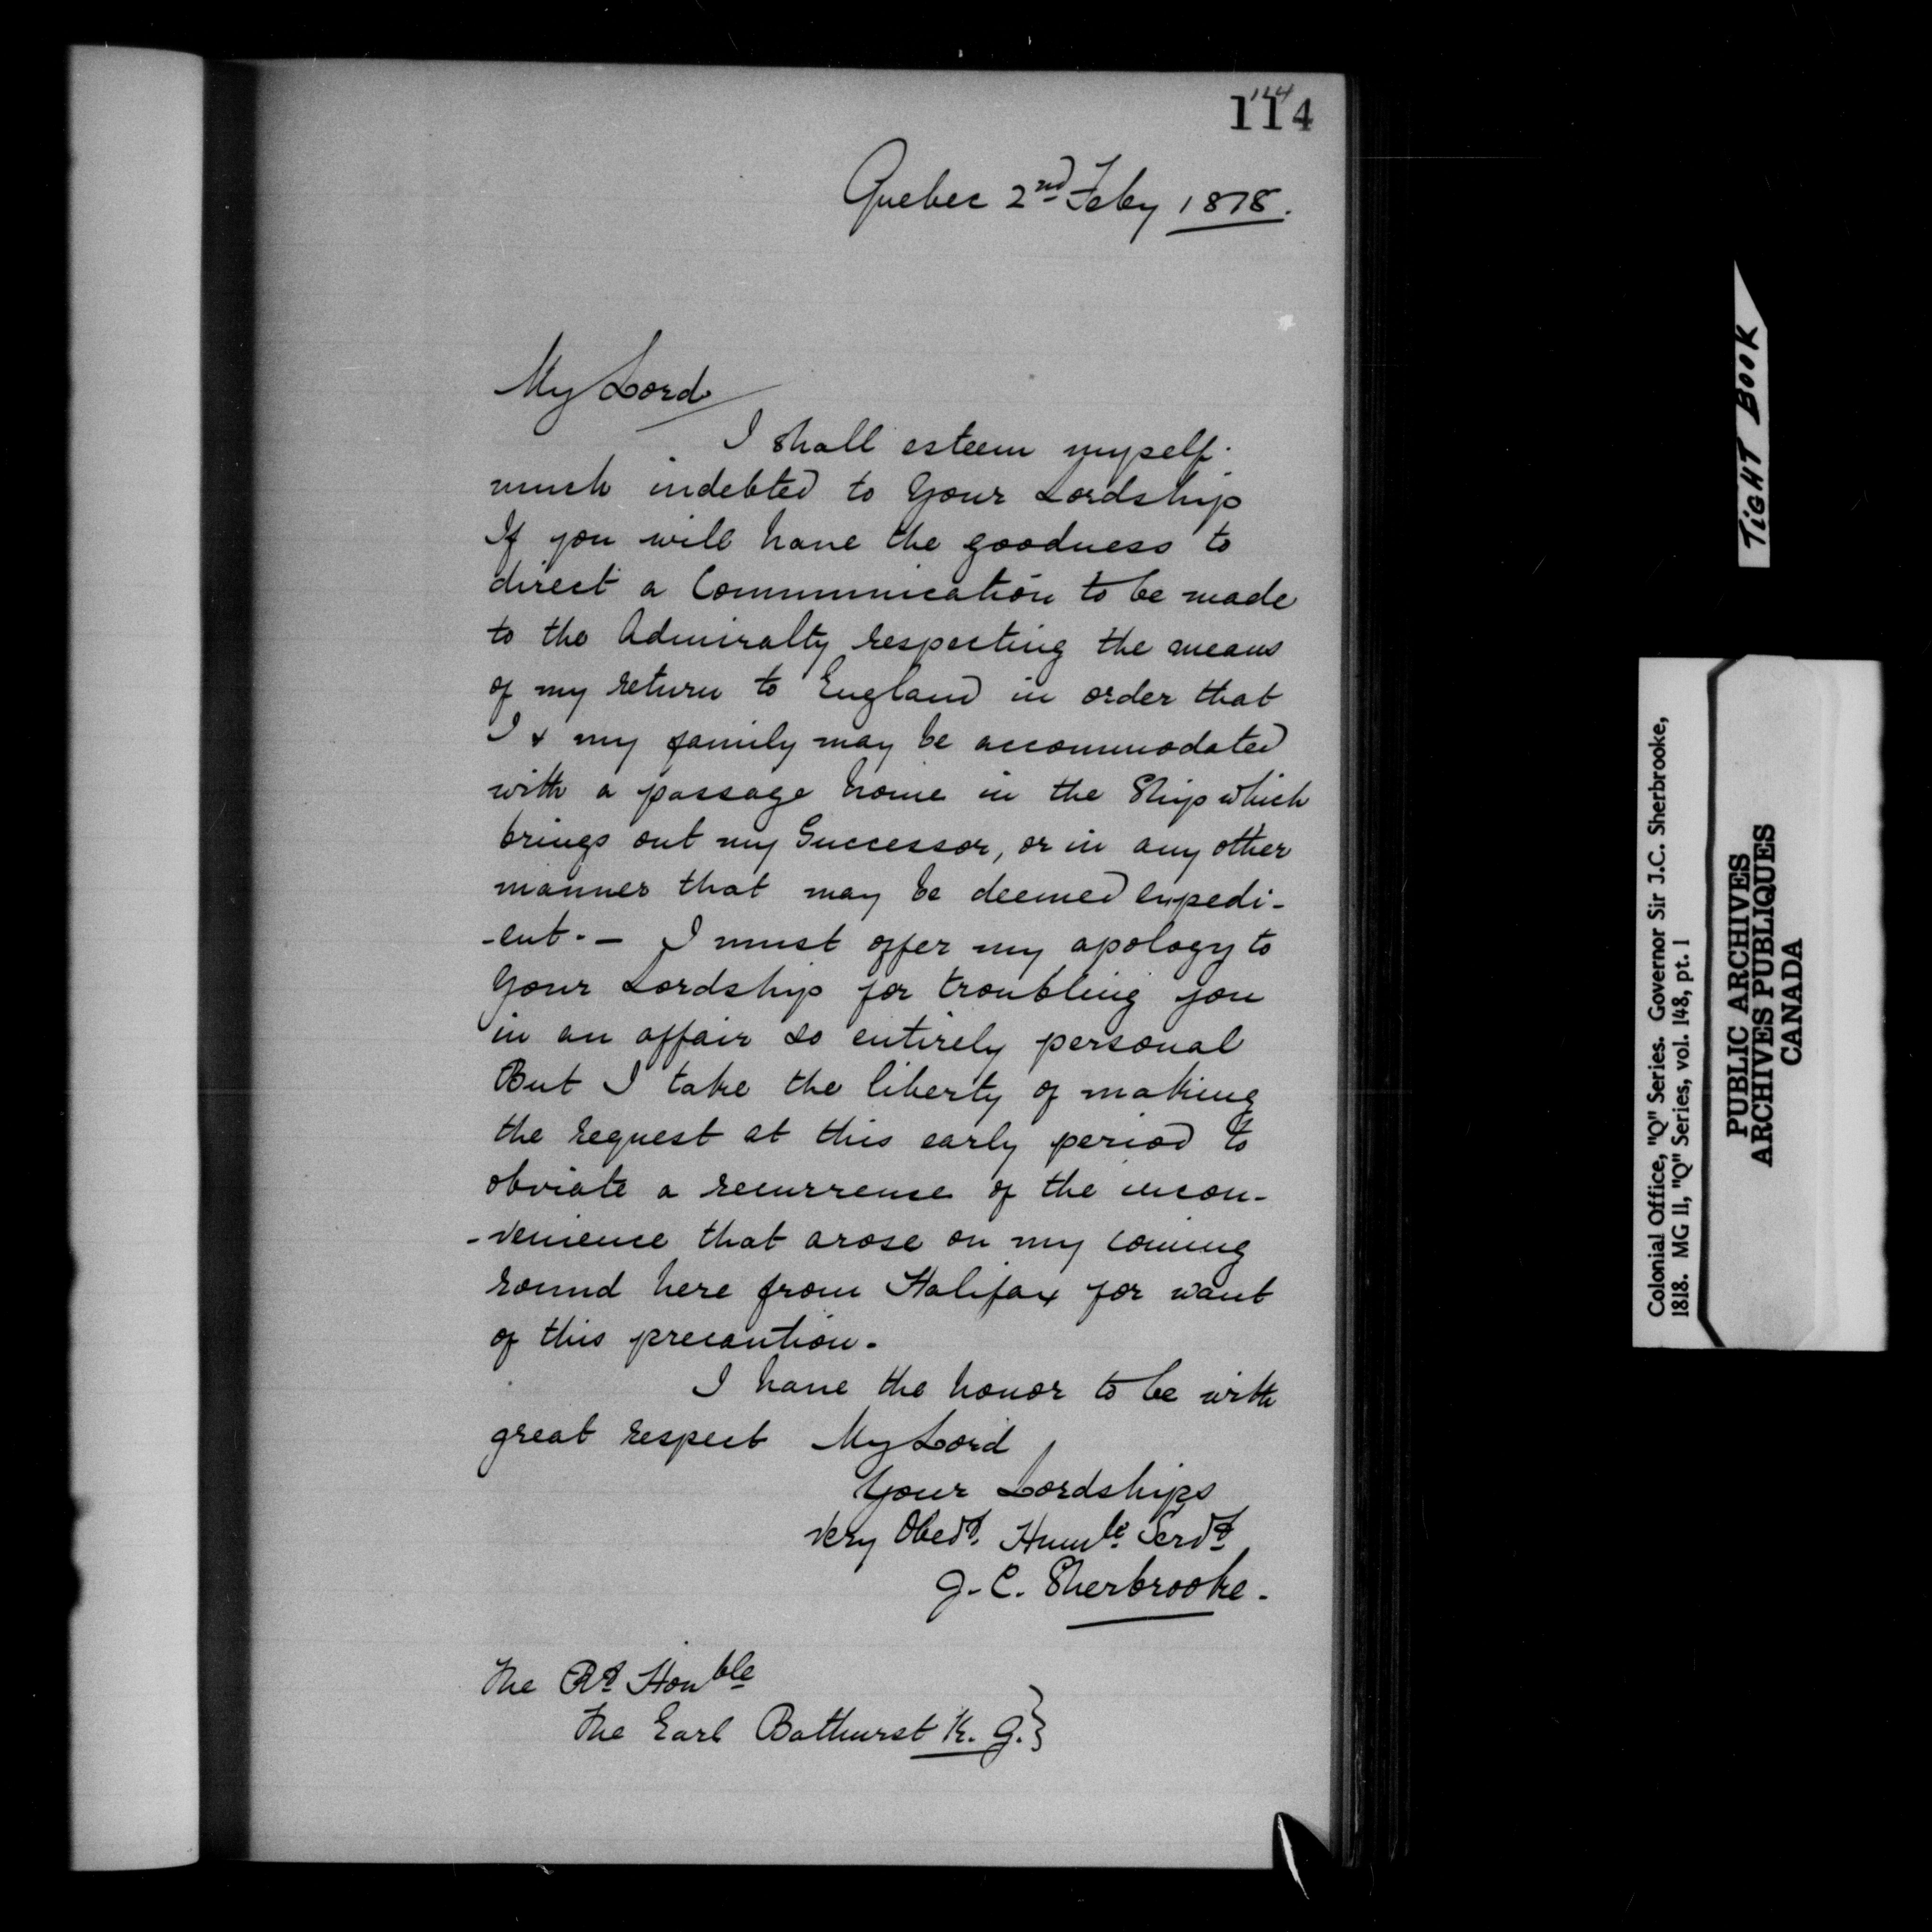 114
114
Quebec 2nd Feby 1878.
My Lord
I shall esteem myself
much indebted to Your Lordship
If you will have the goodness to
direct a Communication to be made
to the Admiralty respecting the means
of my return to England in order that
I & my family may be accommodated
with a passage home in the Ship which
brings out my Successor, or in any other
manner that may be deemed expedi-
-ent. - I must offer my apology to
Your Lordship for troubling you
in an affair so entirely personal
But I take the liberty of making
the request at this early period to
obviate a recurrence of the incon-
-venience that arose on my coming
round here from Halifax for want
of this precaution.
I have the honor to be with
great respect My Lord
Your Lordships
Very Obedt. Humle. Servt
J. C. Sherbrooke.
The Rt Honble
The Earl Bathurst K. G. }
TIGHT BOOK
Colonial Office, "Q" Series. Governor Sir J.C. Sherbrooke,
1818. MG 11, "Q" Series, vol. 148, pt. 1
PUBLIC ARCHIVES
ARCHIVES PUBLIQUES
CANADA